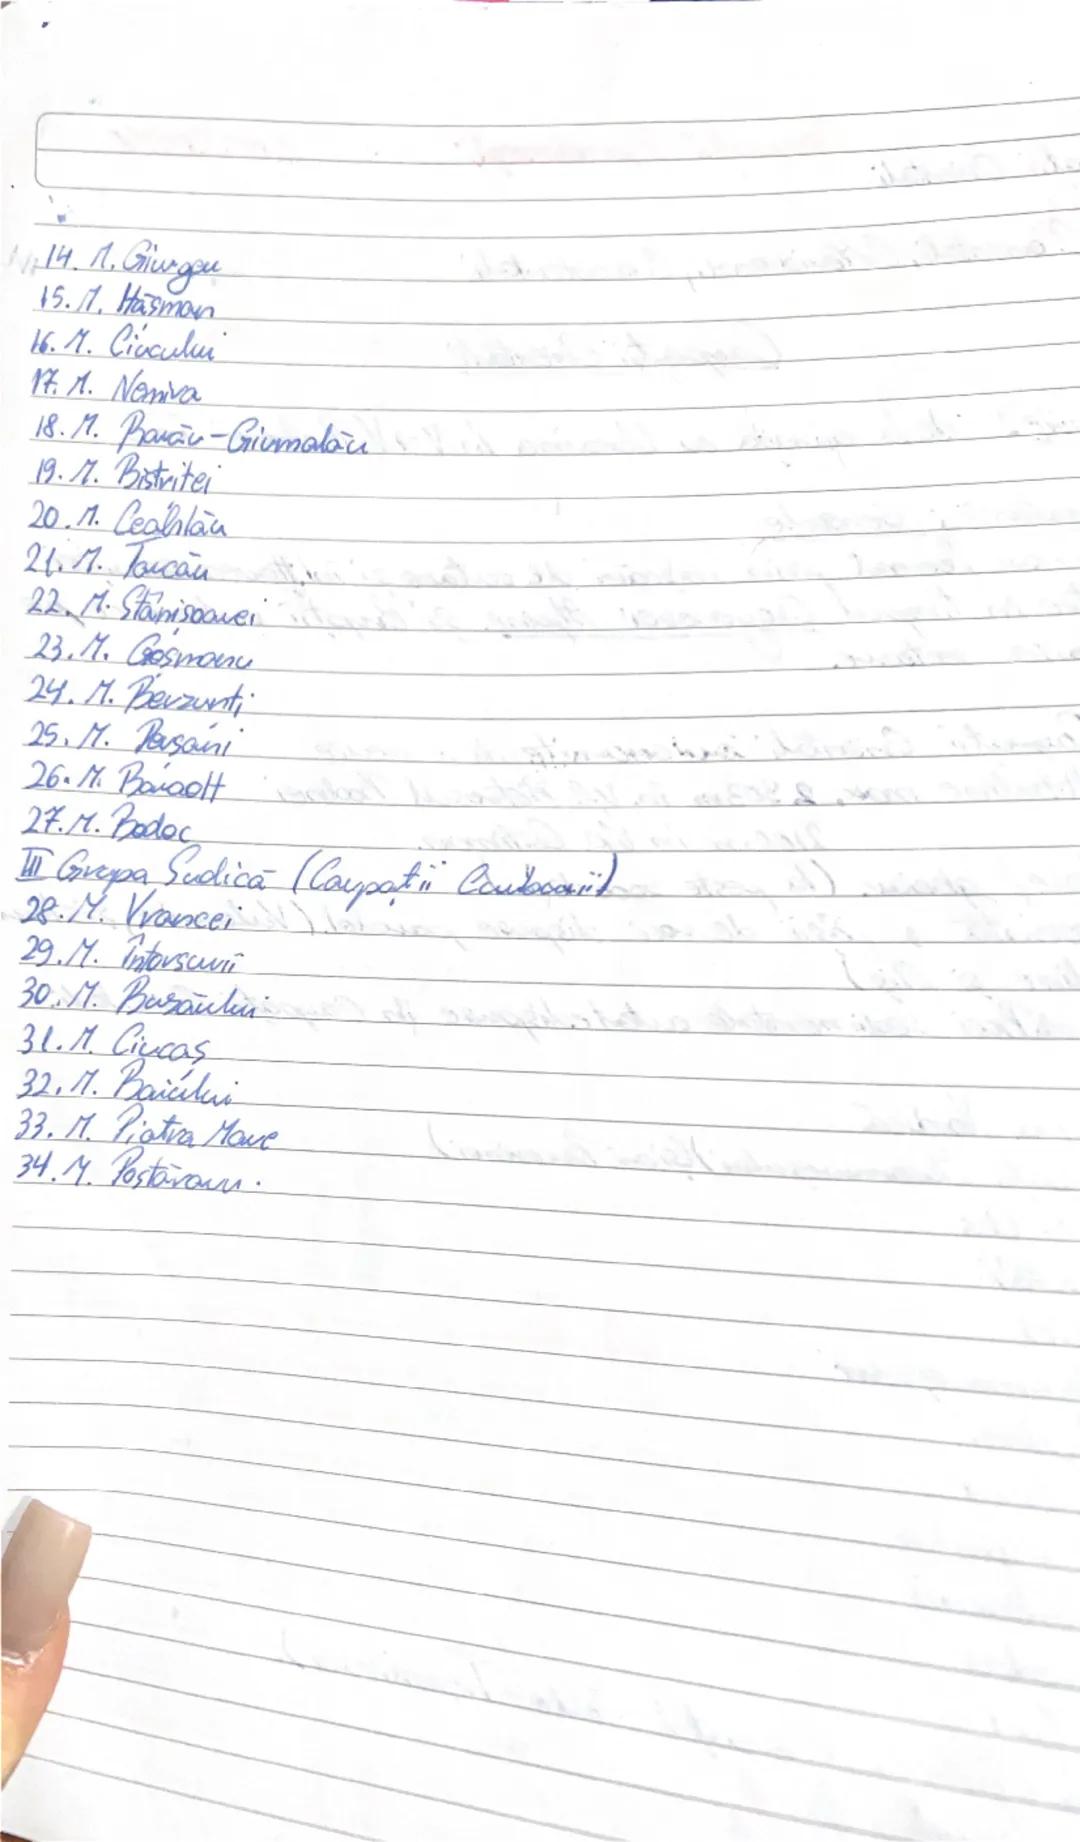 14. M. Giurgeu
15. M. Hăsmaon
16. M. Ciucului
17. M. Nemira
18. M. Rarău-Giumalău
19. M. Bistritei
20. M. Ceahlău
21. M. Tarcău
22. M. Stânisoarei
23. M. Gosmanu
24. M. Berzunti
25. M. Perşani
26. M. Baraolt
27. M. Bodoc
III Grupa Sudică (Carpații Curburii)
28. M. Vrancei
29. M. Întorsurii
30. M. Buzăului
31. M. Ciucaş
32. M. Baiului
33. M. Piatra Mare
34. M. Postăvaru.